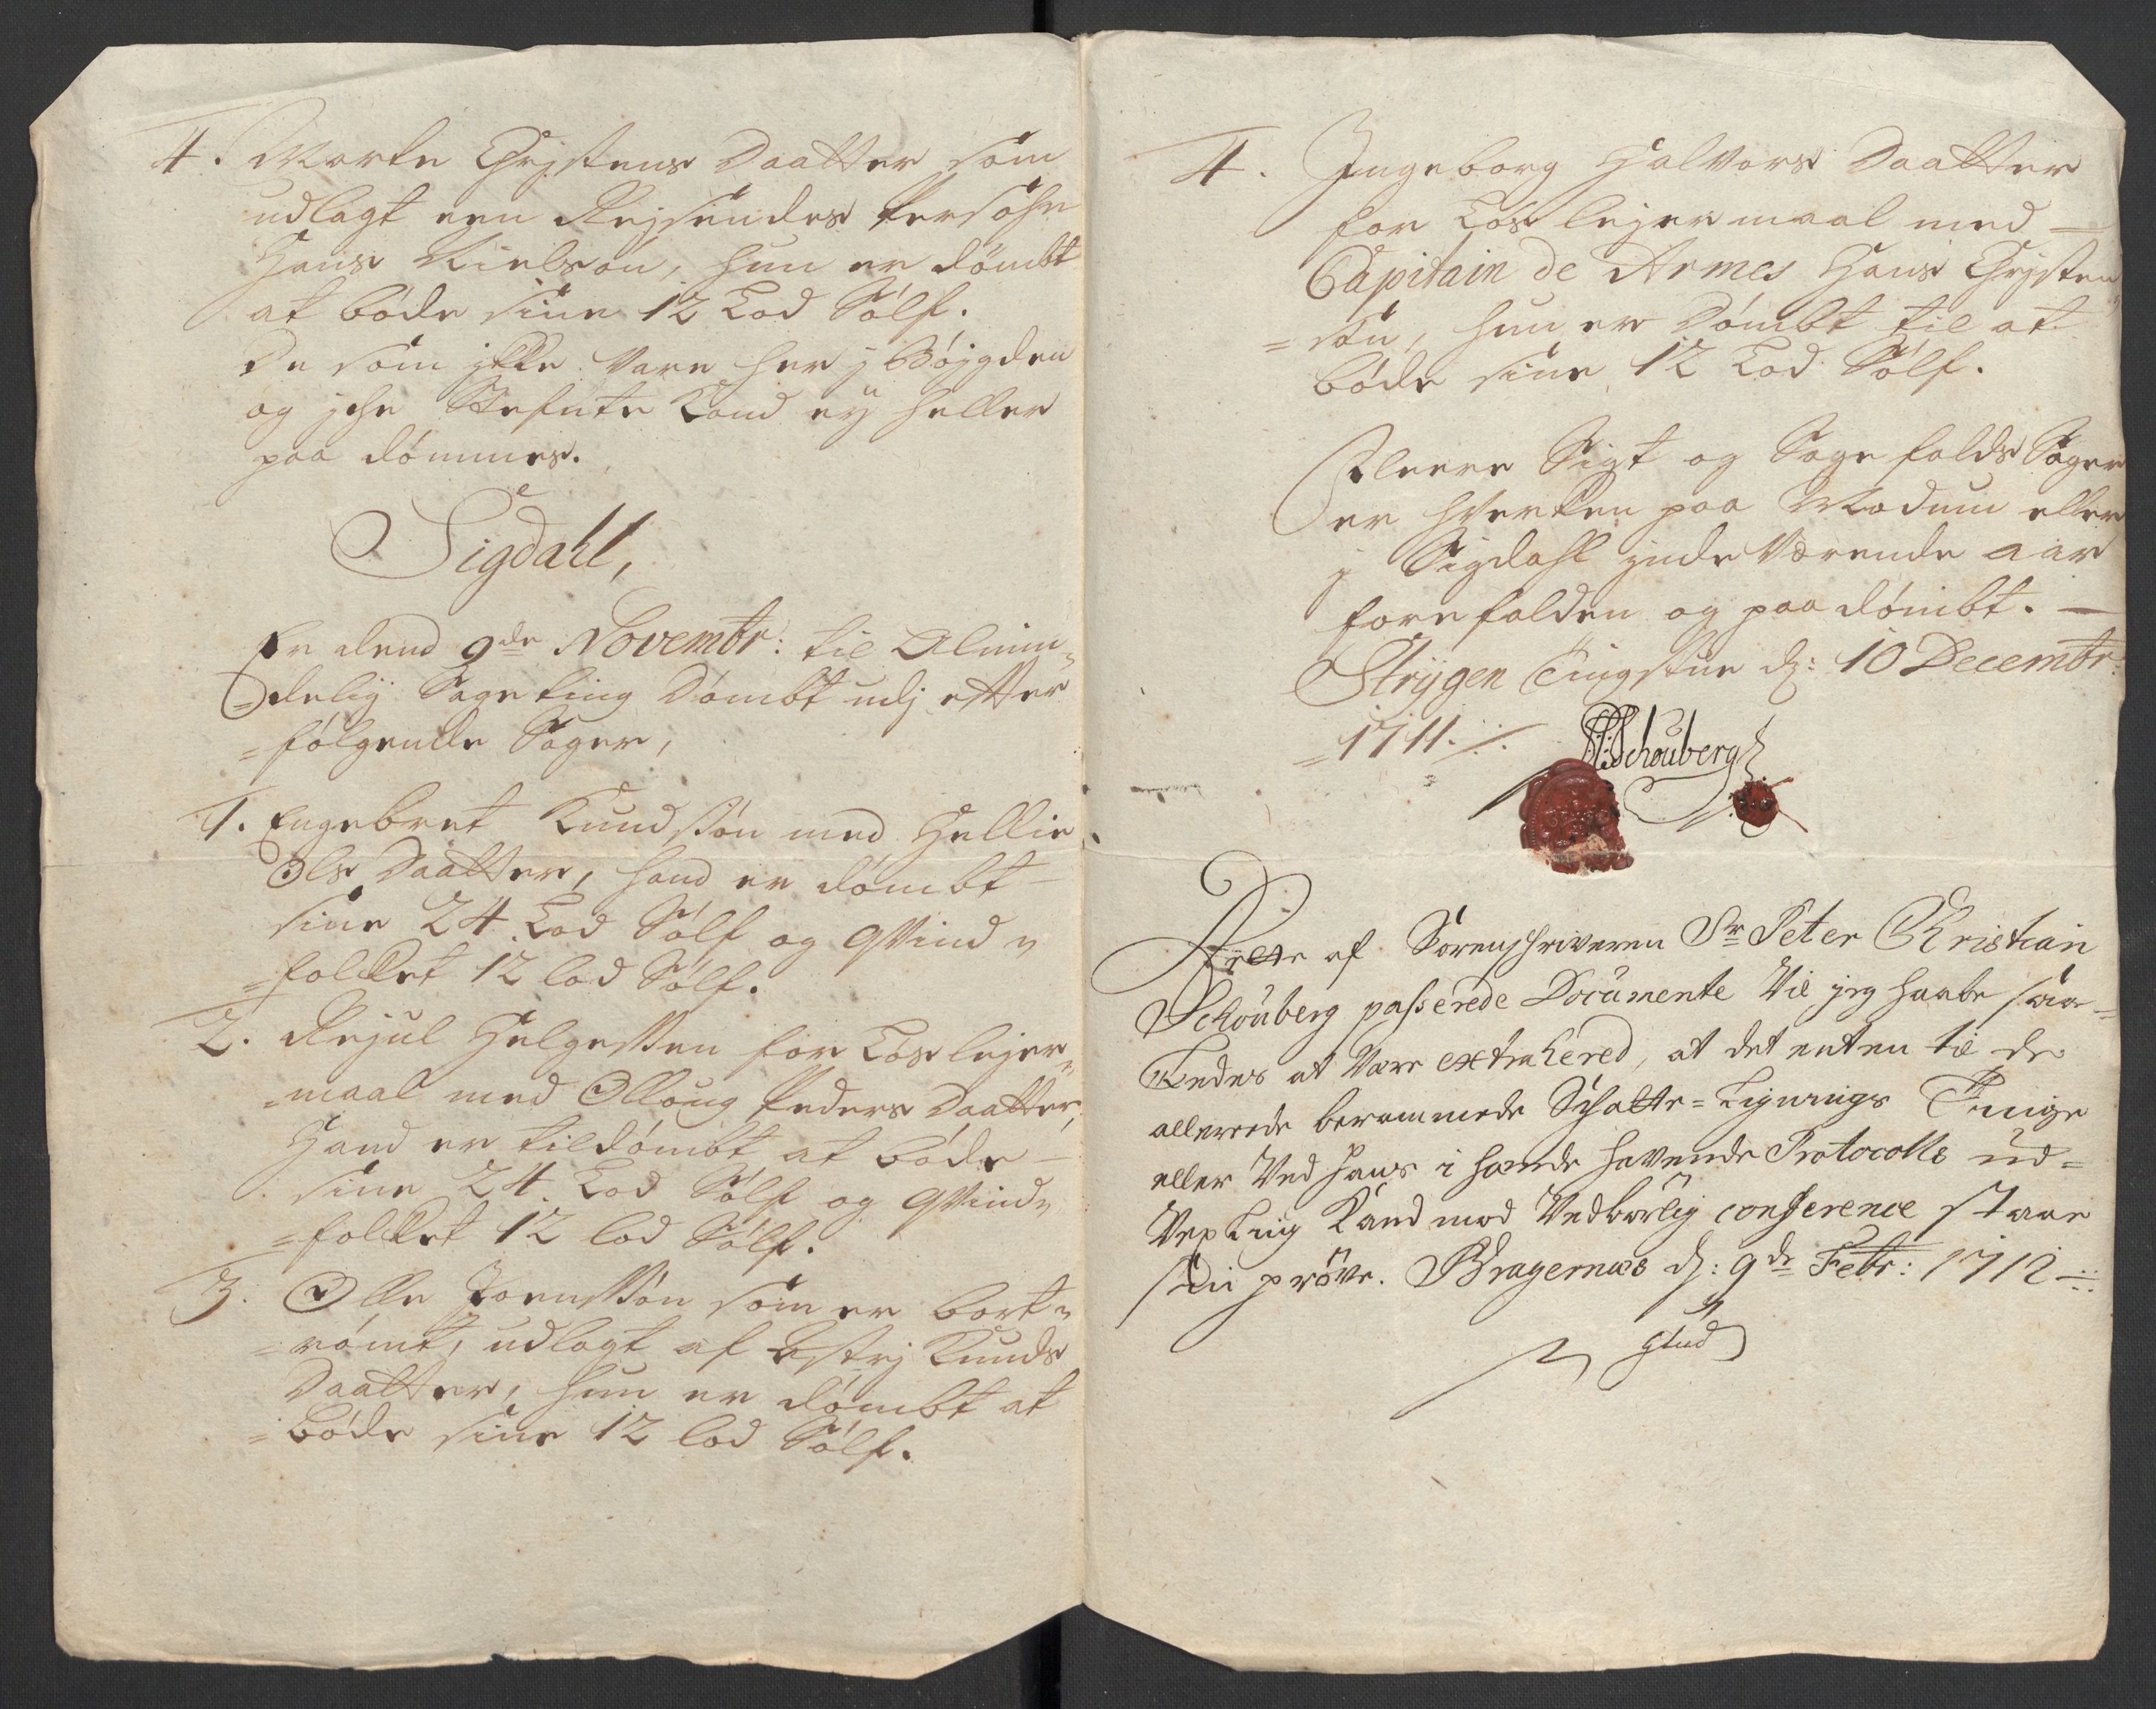 4. Marte Chrjstens Daatter som
udlagt een Rejsendes Persohn
Hans Nielsøn, hun er dömbt
at böde sine 12 Lod Sölf.
De som jkke vare her j Böjgden
og jche Stefnte Kand ey heller
paa dömmes.
Sigdahl,
Er dend 9de Novembr: til Almin„
„delig Sageting Dömbt udj effter
=følgende Sager,
1. Engebret Knudssön med Hellie
Ols Daatter, hand er dömbt
sine 24 Lod Sölf og qvind„
=folcket 12 lod Sölf.
2. Rejul Helgessen for Løslejer„
„maal med Olloug Peders Daatter,
Hand er tildömbt at böde
sine 24. Lod Sölf og qvind„
=folcket 12 lod Sölf.
3. Olle Joenssön som er bort„
=römt, udlagt af Estrj Knuds
Daatter, hun er dömbt at
=böde sine 12 lod Sölf.
4. Ingeborg Halvors Daatter
for Løslejermaal med
Capitain de Armes Hans Chrjsten„
=søn, hun er Dömbt til at
böde sine 12 Lod Sölf.
Fleere Sigt og Sagefalds Sager
er hverken paa Modum eller
j Sigdahl jndeværende aar
forefalden og paadömbt.
Strÿgen Tingstue d: 10 Decembr:
=1711.
Schouberg
af Sorenschriveren Sr Peter Christian
Schouberg passerede Documente Vil jeg haabe saa=
ledes at være extrahered, at det enten til de
allerede berammede Schatte=Lignings Tinge
eller ved hans i hænde havende Protocolls ud=
Kand mod Vedbørlig conference staae
sin prøve. Bragernæs d: 9de Febr: 1712
Glud